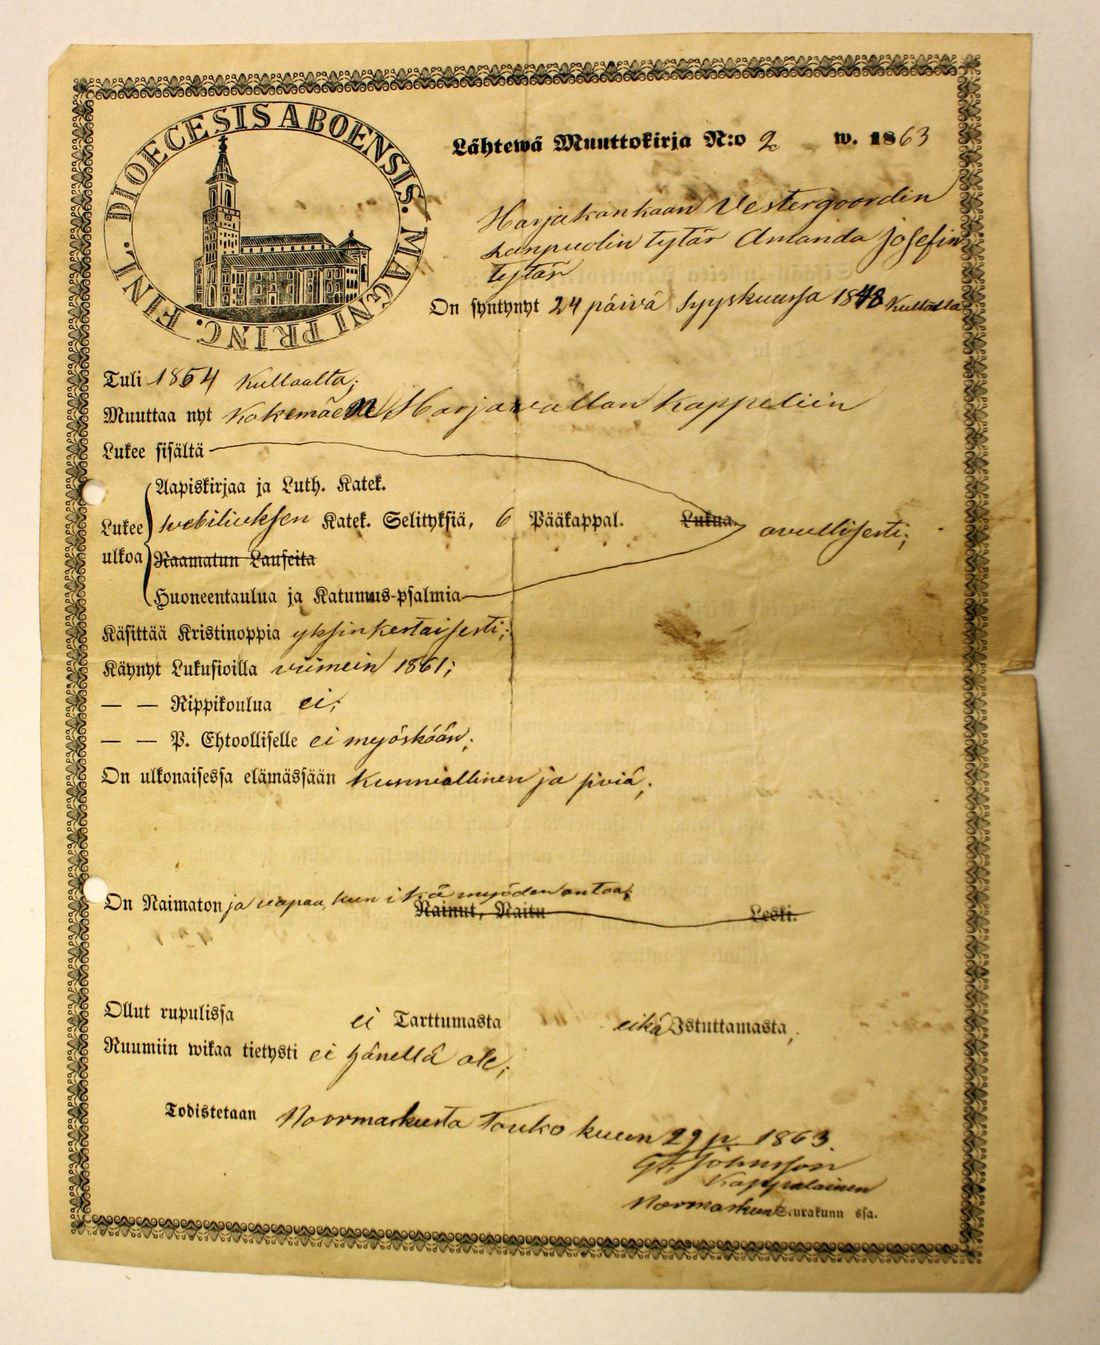 DIOECESIS ABOENSIS. MAGNI PRINC. FINL.
Lähtewä Muuttokirja N:o 2 w. 1863
Harjakankaan Vestergoordin
Lanpuolin tytär Amanda Josefin
tytär
On syntynyt 24 päivä Syyskuussa 1848 Kullaalla
Tuli 1854 Kullaalta;
Muuttaa nyt Kokemäen Harjavallan Kappeliin
Lukee sisältä
Aapiskirjaa ja Luth. Katek.
Lukee ulkoa
Svebiliuksen Katek. Selityksiä, 6 Pääkappal. Lukua. avullisesti;
Raamatun Lauseita
Huoneentaulua ja Katumus-psalmia
Käsittää Kristinoppia yksinkertaisesti;
Käynyt Lukusioilla viimein 1861;
— — Rippikoulua ei;
— — P. Ehtoolliselle ei myöskään;
On ulkonaisessa elämässään kunniallinen ja siviä;
On Naimaton ja vapaa, kun ikä myöden antaa;
Nainut, Naitu Leski.
Ollut rupulissa ei Tarttumasta eikä Istuttamasta;
Ruumiin wikaa tietysti ei hänellä ole;
Todistetaan Noormarkusta Toukokuun 29 p. 1863.
Johnsson
Kappalainen
Noormarkun Seurakunn ssa.